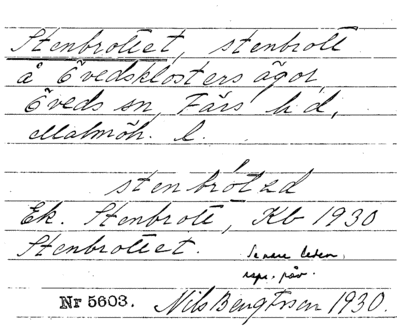 Stenbrottet, stenbrott
å Övedsklosters ägor,
Öveds sn, Färs hd,
Malmöh. l.
stenbrótəd
Ek. Stenbrott, Kb 1930
Stenbrottet.
Senare leden
repr. påv.
Nr 5603. Nils Bengtsson 1930.